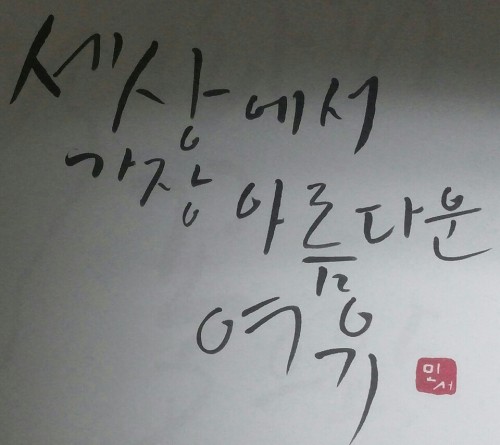 세상에서
가장 아름다운
여유
민서